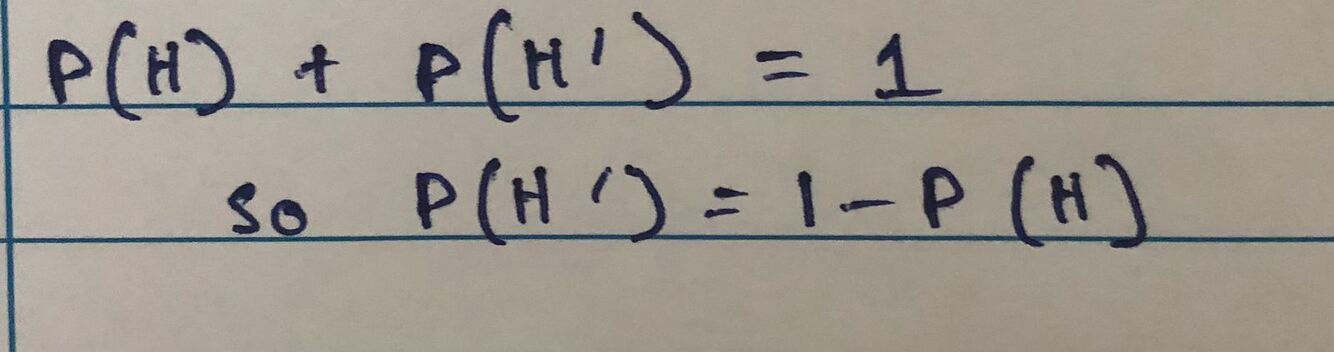 P(H) + P(H') = 1
so P(H') = 1 - P(H)